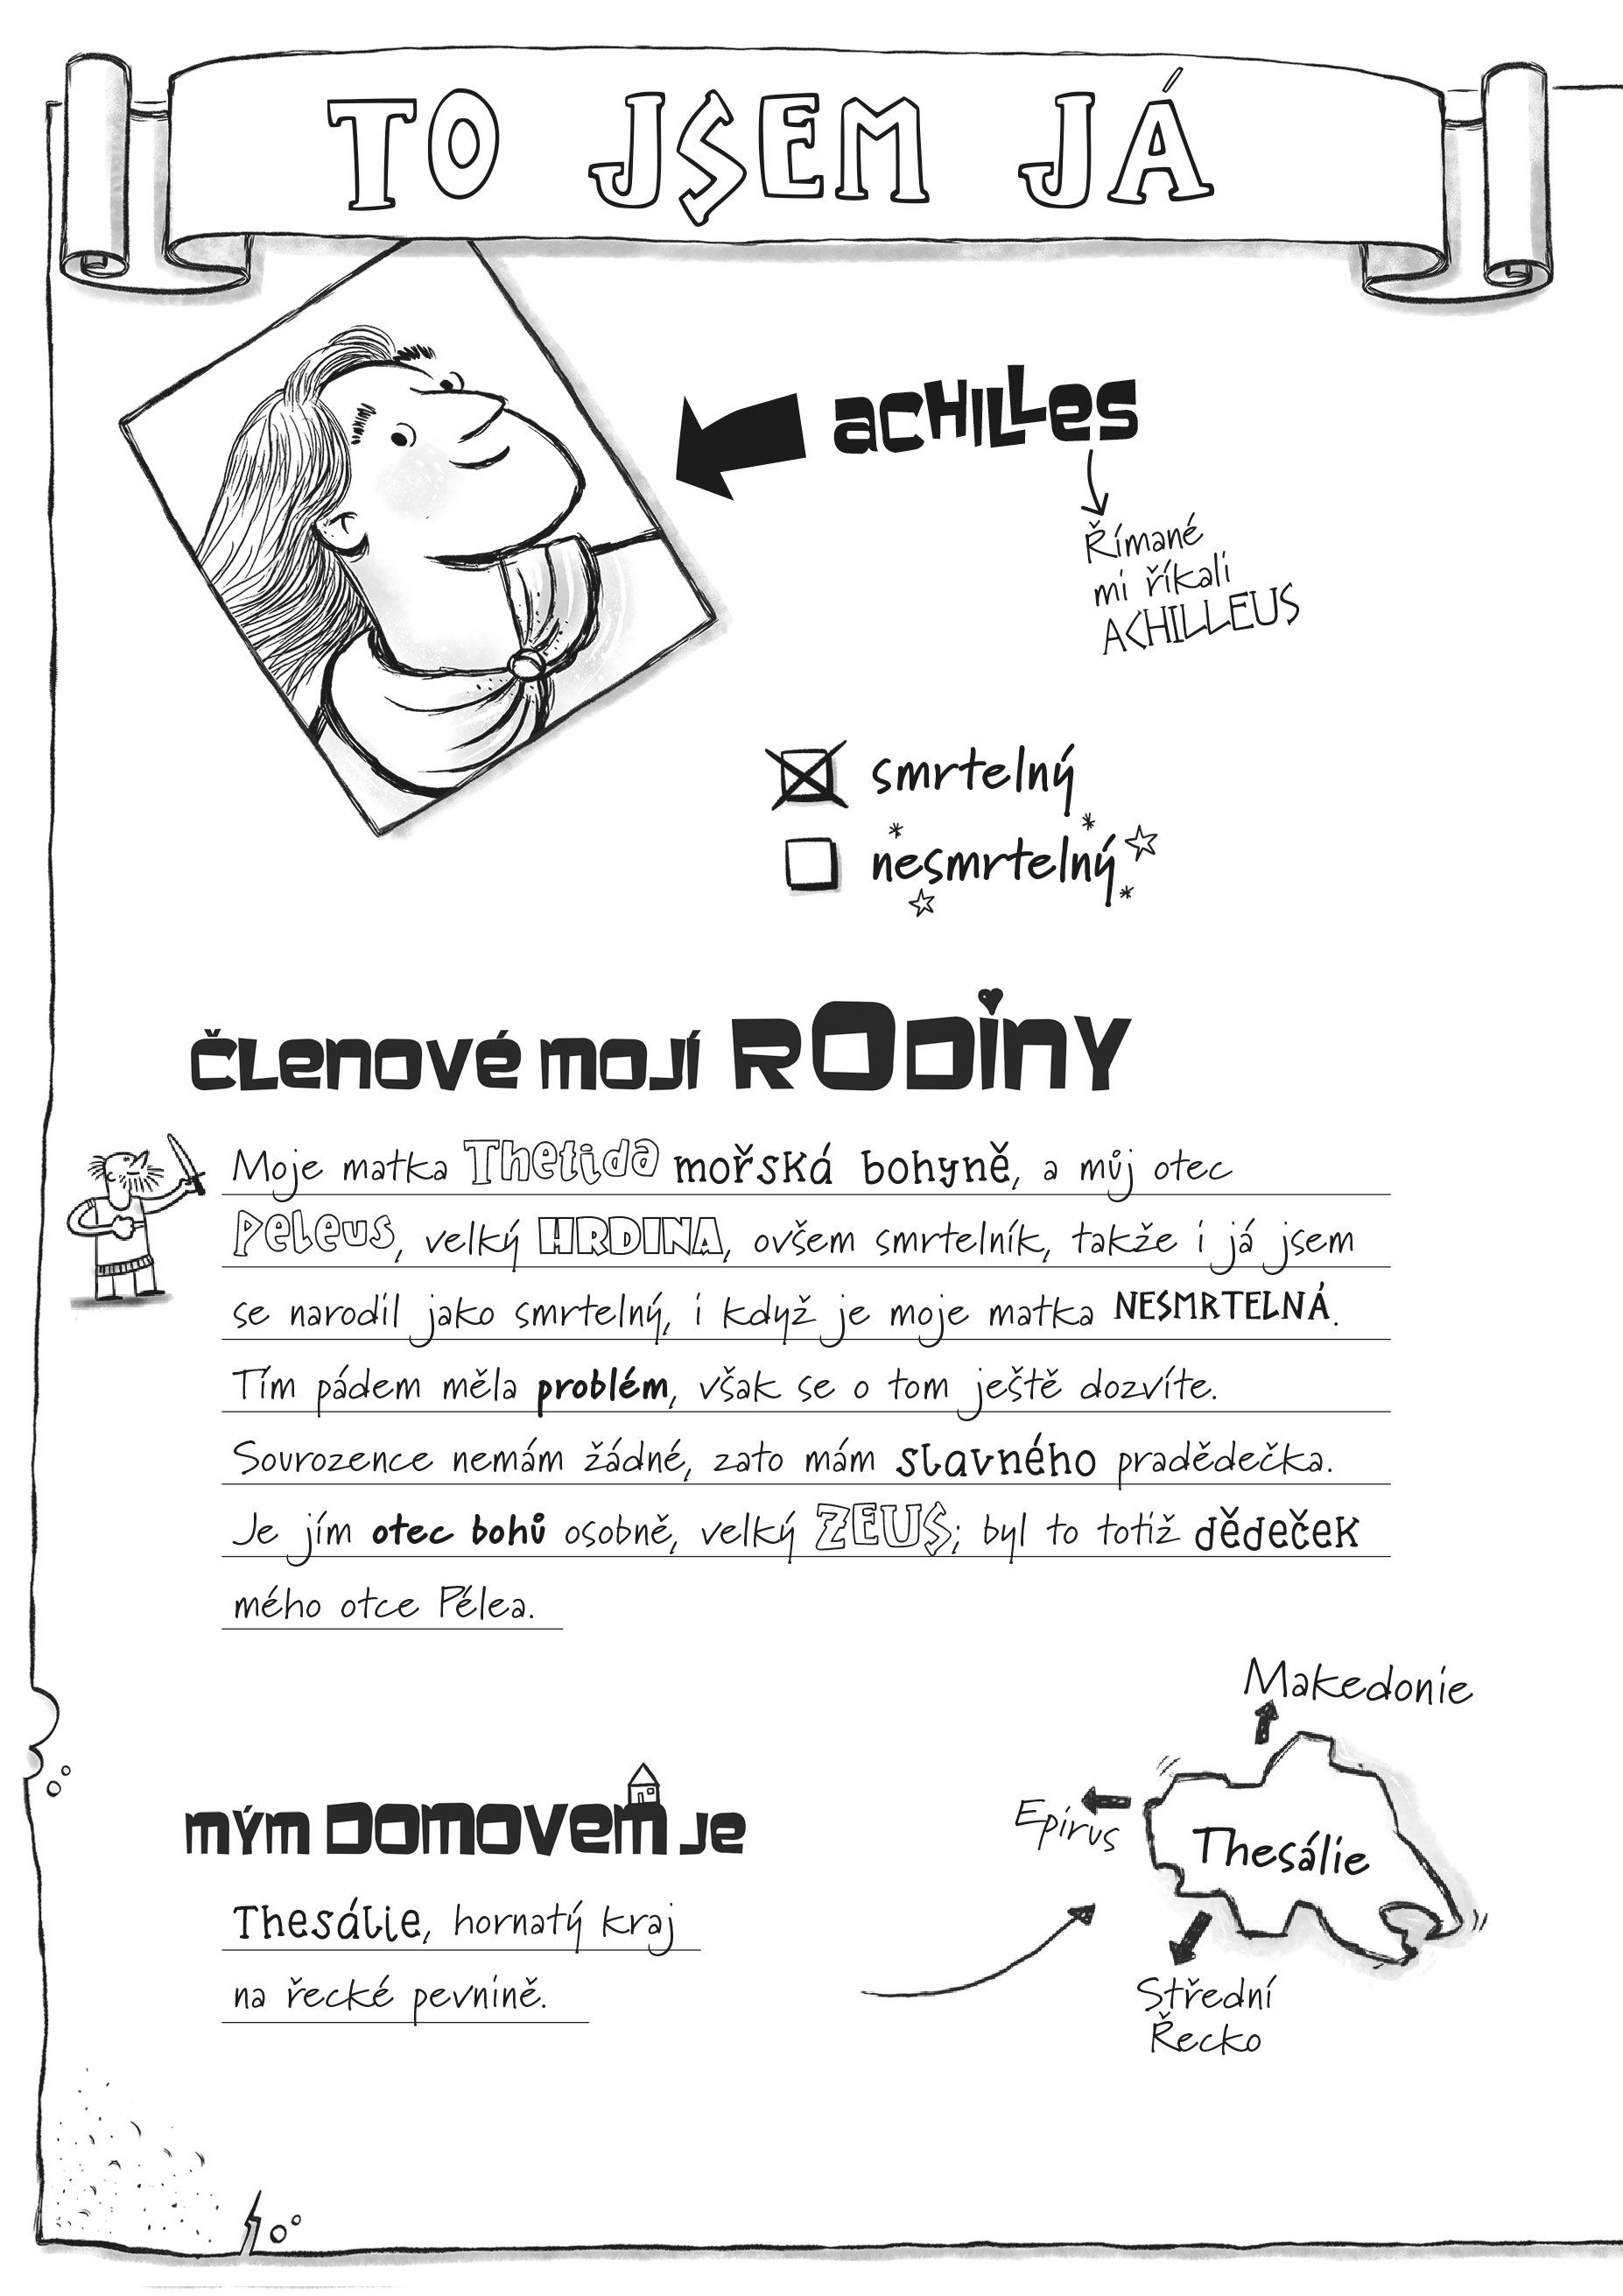 TO JSEM JÁ
achilles
Římané
mi říkali
ACHILLEUS
smrtelný
nesmrtelný
členové mojí RODINY
Moje matka Thetida mořská bohyně, a můj otec
Peleus, velký HRDINA, ovšem smrtelník, takže i já jsem
se narodil jako smrtelný, i když je moje matka NESMRTELNÁ.
Tím pádem měla problém, však se o tom ještě dozvíte.
Sourozence nemám žádné, zato mám slavného pradědečka.
Je jím otec bohů osobně, velký ZEUS; byl to totiž dědeček
mého otce Pélea.
Makedonie
Epirus
Thesálie
Střední
Řecko
mým DOMOVEM je
Thesálie, hornatý kraj
na řecké pevnině.